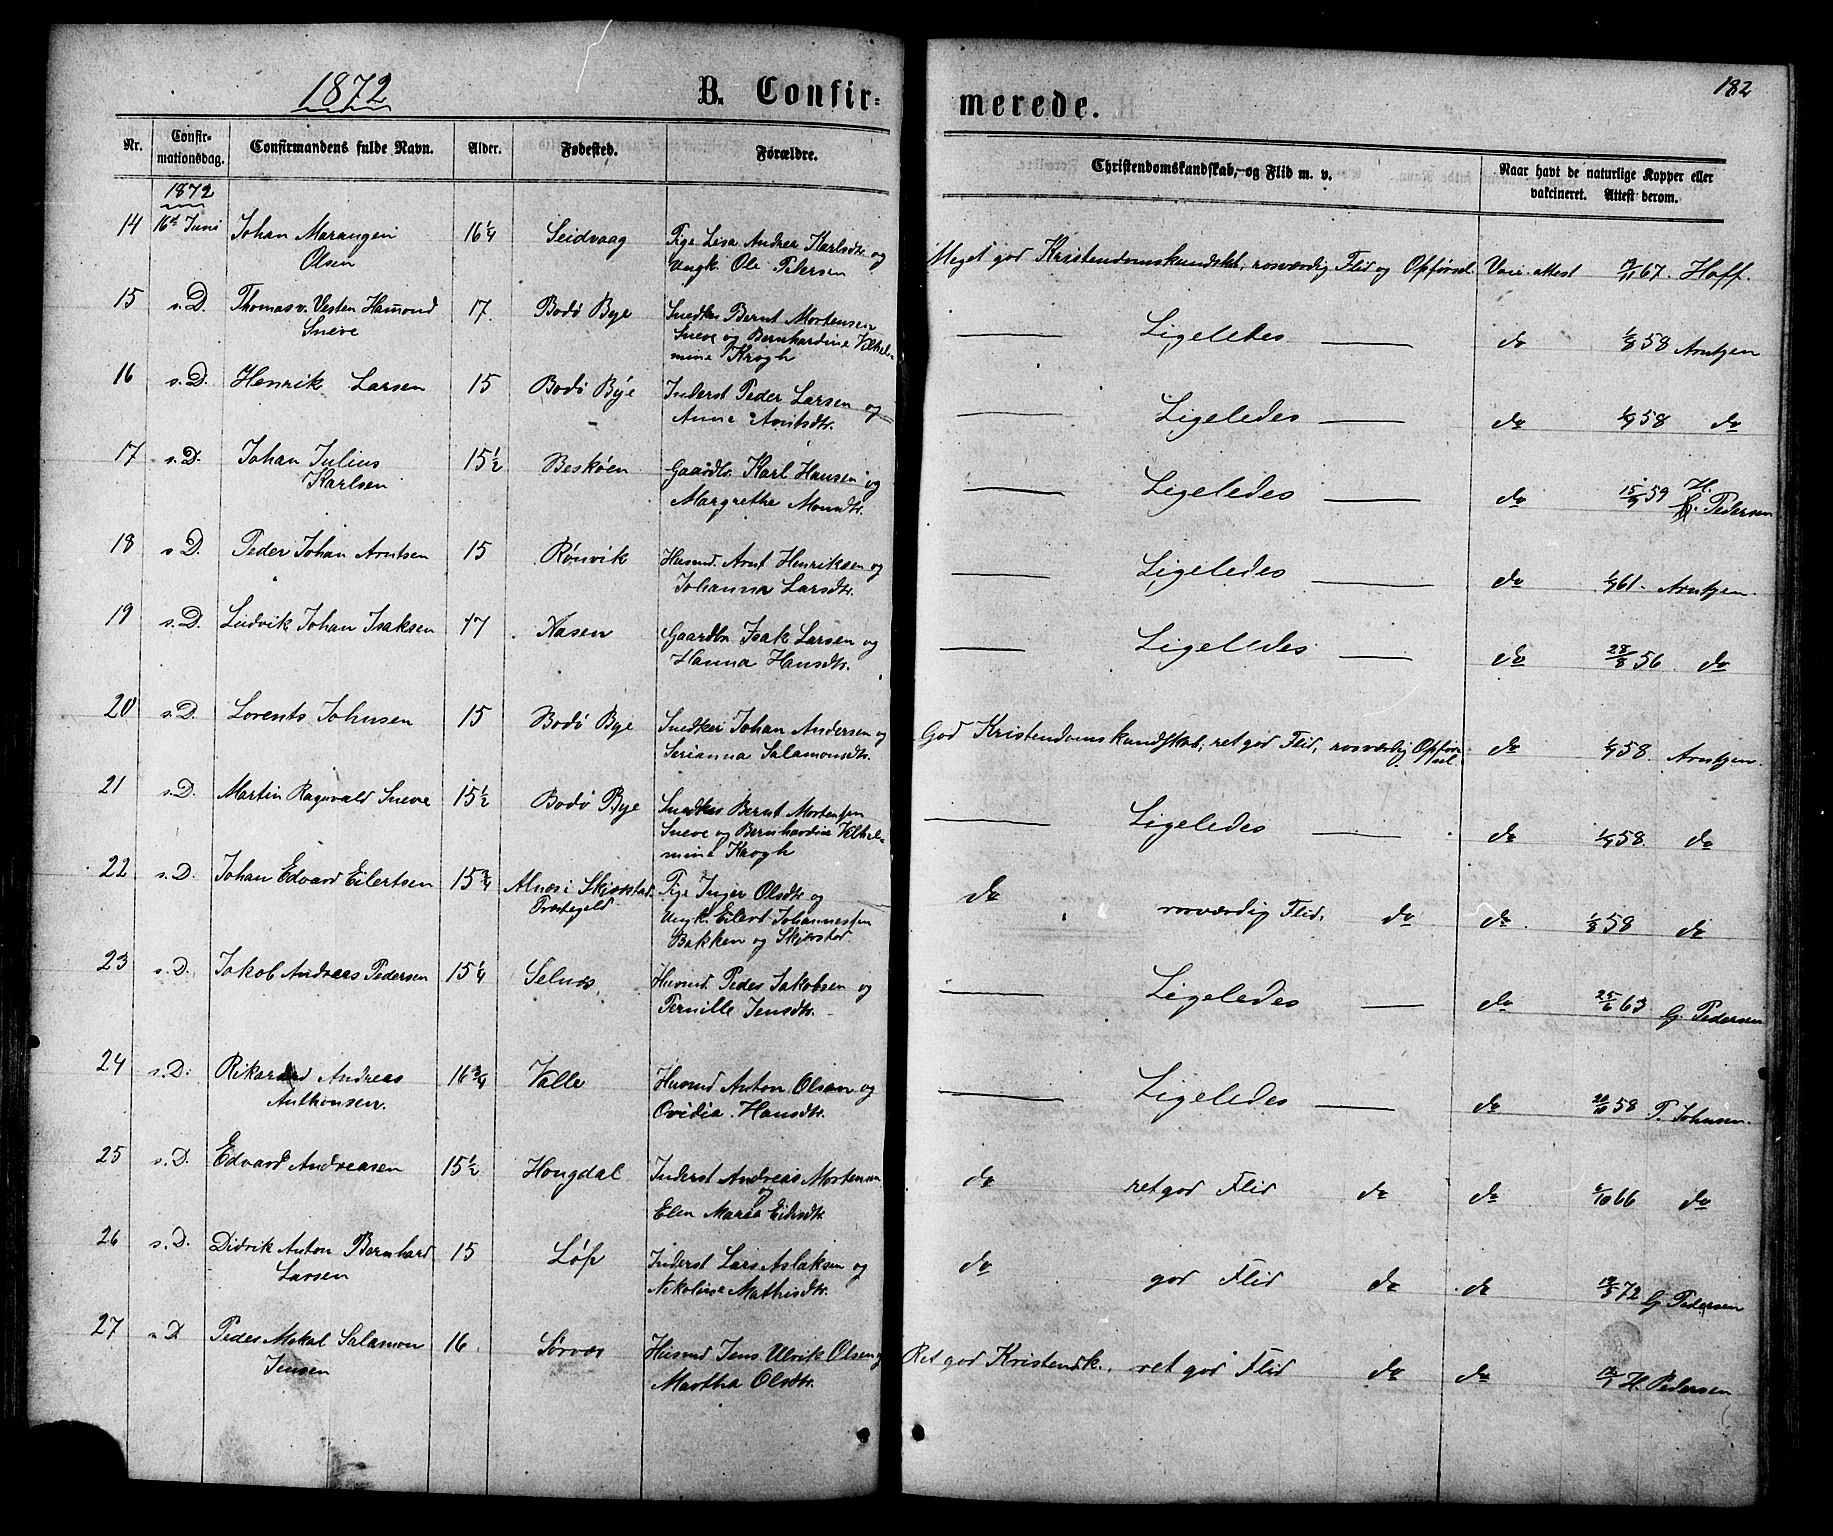 1872
B. Confir-
merede.
182
Nr.
Confir-
mationsdag.
Confirmandens fulde Navn.
Alder.
Fødested.
Forældre.
Christendomskundskab,-og Flid m. v.
Naar havt de naturlige Kopper eller
vakcineret. Attest derom.
1872
14 16de Juni Johan Marangen 16 1/4 Seidvaag Pige Lisa Andrea Karlsdtr og
Olsen Ungk. Ole Petersen
Meget god Kristendomskundskab, rosværdig Flid og Opførsel Vacc. attest 67. Hoff.
15 s.D. Thomas v. Vesten Hamond 17. Bodø Bye Snedker Bernt Mortensen
Sneve Sneve og Bernhardine Vilhel-
mine Krogh
Ligeledes do 1/8 58 Arntzen
16 s.D. Henrik Larsen 15 Bodø Bye Inderst Peder Larsen og
Anne Arntsdtr.
Ligeledes do 58 do
17 s.D. Johan Julius 15 1/2 Beskøen Gaardbr. Karl Hansen og
Karlsen Margrethe Monsdtr.
Ligeledes do 15/9 59 H.
Pedersen
18 s.D. Peder Johan Arntsen 15 Rønvik Husmd. Arnt Henriksen og
Johanna Larsdtr.
Ligeledes do 61. Arntzen.
19 s.D. Ludvik Johan Isaksen 17 Nasen Gaardbr Isak Larsen og
Hanna Hansdtr.
Ligeledes do 28/8 56 do
20 s.D. Lorents Johnsen 15 Bodø Bye Snedker Johan Andersen og
Serianna Salamonsdtr.
God Kristendomskundskab, ret god Flid, rosværdig Opfør-
sel do 58. Arntzen.
21 s.D. Martin Ragnvald Sneve 15 1/2 Bodø Bye Snedker Bernt Mortensen
Sneve og Bernhardine Vilhel-
mine Krogh
Ligeledes do 58. do
22 s.D. Johan Edvard Eilertsen 15 3/4 Alnæs i Skjerstad Pige Inger Olsdtr og
Præstegeld Ungk. Eilert Johannessen
Bakken og Skjerstad
do rosværdig Flid, do do 1/8 58 do
23 s.D. Jakob Andreas Pedersen 15 1/4 Selnæs Husmd Peder Jakobsen og
Pernille Jensdtr.
Ligeledes do 25/6 63 G. Pedersen
24 s.D. Rikard Andreas 16 3/4 Valle Husmd Anton Olsen og
Anthonsen. Ovidia Hansdtr.
Ligeledes do 58 P. Johnsen.
25 s.D. Edvard Andreasen 15 1/2 Hongdal Inderst Andreas Mortensen
og
Elen Maria
do ret god Flid do do 66 do
26 s.D. Didrik Anton Bernhard 15 Løp Inderst Lars Aslaksen og
Larsen Nikoline Mathisdtr.
do god Flid do do 72 G. Pedersen
27 s.D Peder Mekal Salamon 16 Sørvær Husmd Jens Ulrik Olsen og
Jensen Martha Olsdtr.
Ret god Kristendk. ret god Flid do do H. Pedersen